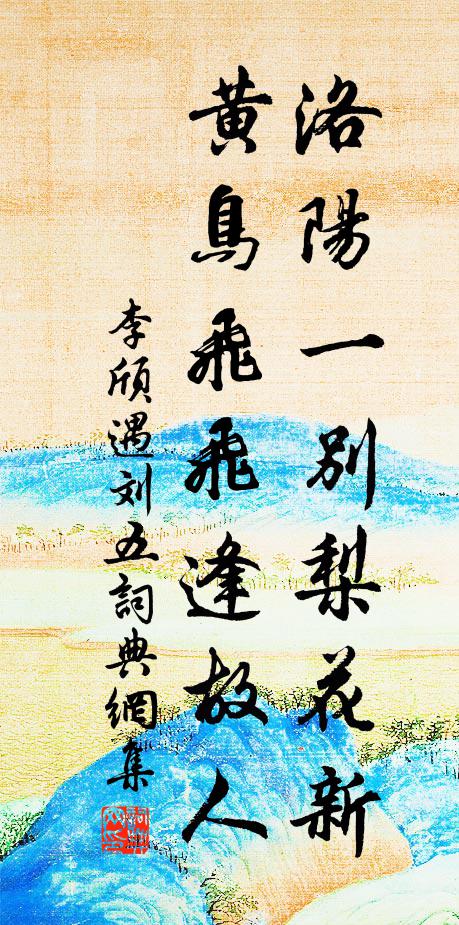 洛陽一別梨花新
黃鳥飛飛逢故人
李頎遇刘五詞典網集